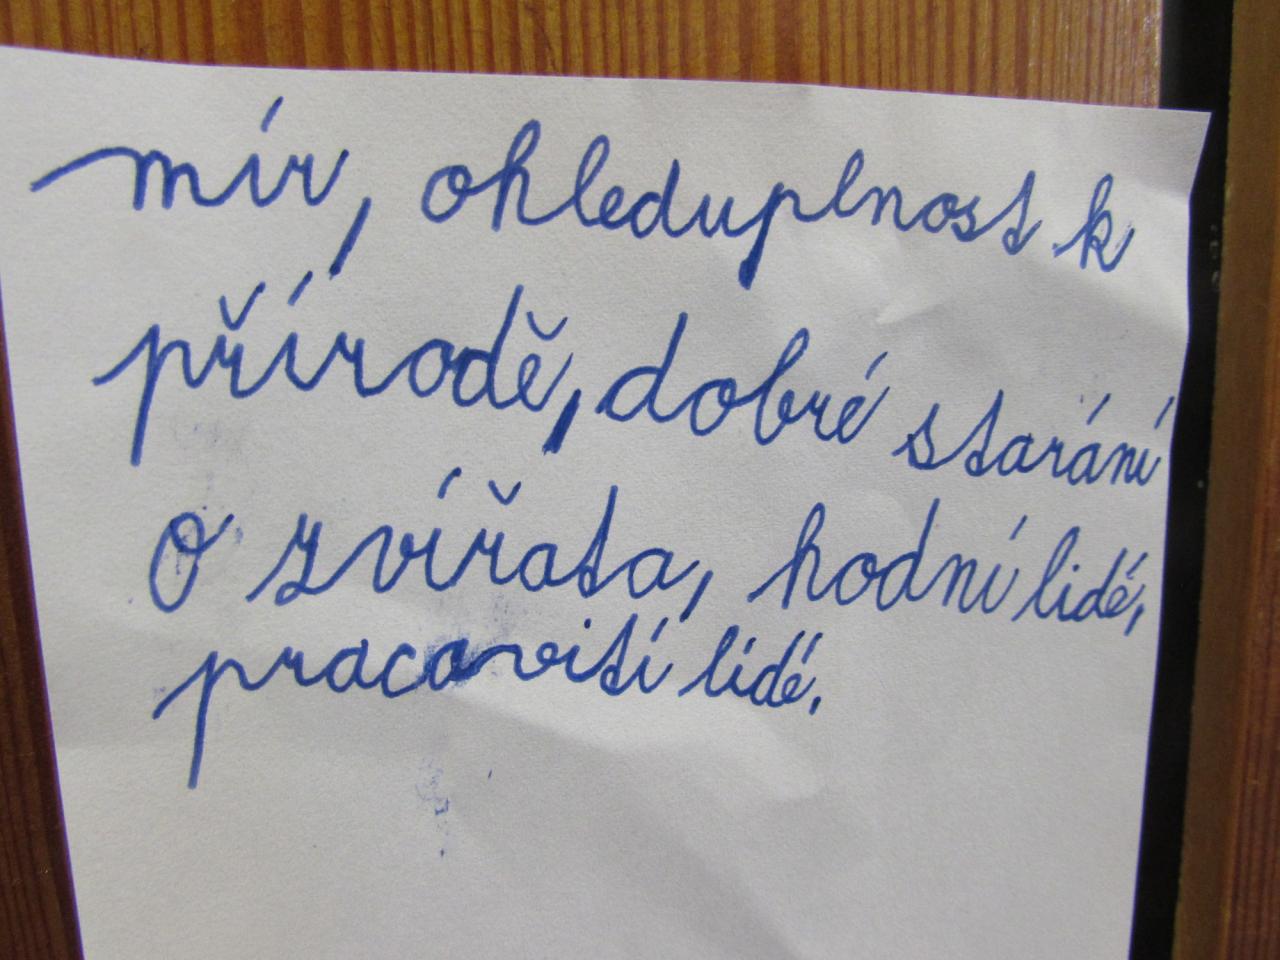 mír, ohleduplnost k
přírodě, dobré starání
o zvířata, hodní lidé,
pracovití lidé.